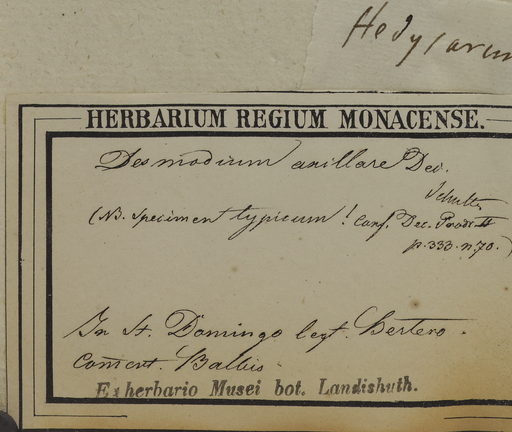 Hedysarum
HERBARIUM REGIUM MONACENSE.
Desmodium axillare Dec.
Schult.
(NB. specimen typicum! Conf. Dec. Prodr. II
p. 333. n. 70.)
In St. Domingo legt. Bertero.
Coment. Balbis
Ex herbario Musei bot. Landishuth.